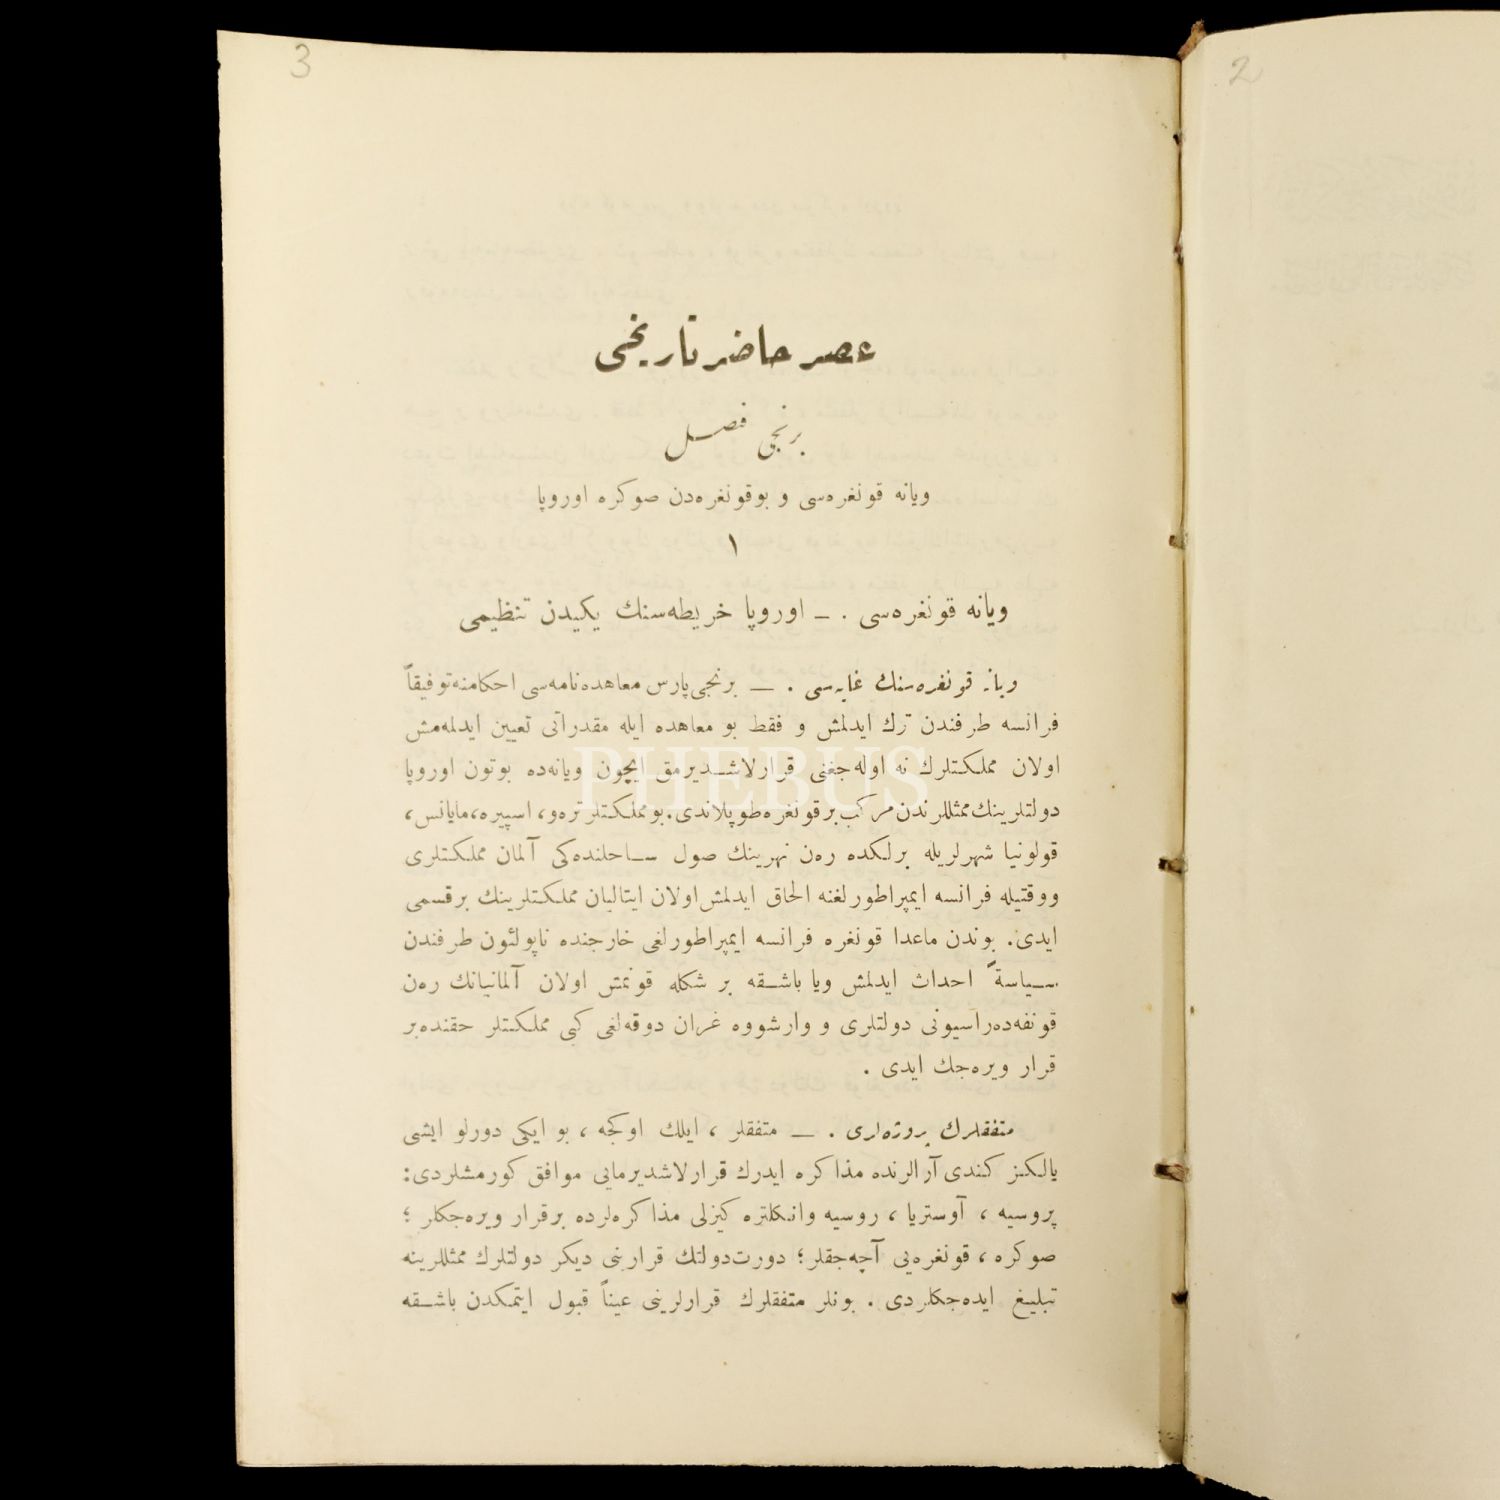 3
2
عصر حاضر تاریخی
برنجی فصل
ویانه قونغره‌سی و بوقونغره‌دن صوكره اوروپا
۱
ویانه قونغره‌سی . — اوروپا خریطه‌سنك یكیدن تنظیمی
ویانه قونغره‌سنك غایه‌سی . — برنجی پارس معاهده‌نامه‌سی احكامنه توفیقاً
فرانسه طرفندن ترك ایدلمش و فقط بو معاهده ایله مقدراتی تعیین ایدلمه‌مش
اولان مملكتلرك نه اوله‌جغنی قرارلاشدیرمق ایچون ویانه‌ده بوتون اوروپا
دولتلرینك ممثللرندن مركب بر قونغره طوپلاندی. بو مملكتلر تره‌و، اسپیره، مایانس،
قولونیا شهرلریله برلكده ره‌ن نهرینك صول ساحلنده‌كی آلمان مملكتلری
ووقتیله فرانسه ایمپراطورلغنه الحاق ایدلمش اولان ایتالیان مملكتلرینك بر قسمی
ایدی. بوندن ماعدا قونغره فرانسه ایمپراطورلغی خارجنده ناپولئون طرفندن
سیاسةً احداث ایدلمش ویا باشقه بر شكله قونمش اولان آلمانیانك ره‌ن
قونفه‌ده‌راسیونی دولتلری و وارشووه غران دوقه‌لغی كبی مملكتلر حقنده بر
قرار ویره‌جك ایدی .
متفقلرك پروژه‌لری . — متفقلر ، ایلك اوكجه ، بو ایكی دورلو ایشی
یالكز كندی آرالرنده مذاكره ایدرك قرارلاشدیرمایی موافق كورمشلردی:
پروسیه ، آوستریا ، روسیه وانكلتره كیزلی مذاكره‌لرده برقرار ویره‌جكلر ؛
صوكره ، قونغره‌یی آچه‌جقلر ؛ دورت دولتك قرارینی دیكر دولتلرك ممثللرینه
تبلیغ ایده‌جكلردی . بونلر متفقلرك قرارلرینی عیناً قبول ایتمكدن باشقه
PHEBUS